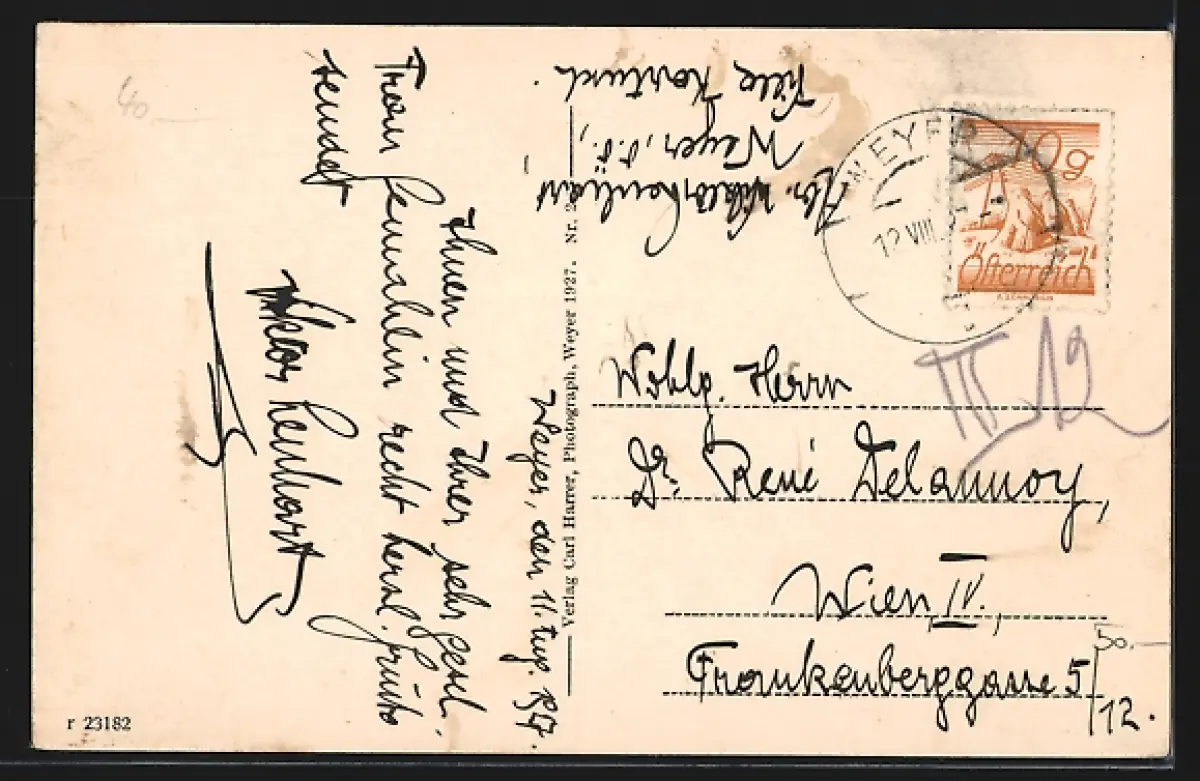 Weyer, den 11. Aug. 1927.
Ihnen und Ihrer sehr gesch.
Frau Gemahlin recht herzl. Grüße
sendet
Viktor Lenhart
Abs. Viktor Lenhart
Weyer, O.Ö.,
Villa
Verlag Carl Harrer, Photograph, Weyer 1927. Nr.
WEYER
12 VIII
10g
Österreich
III/19
Wohlg. Herrn
Dr. René Delannoy,
Wien, IV.,
Frankenberggasse 5/12.
50.—
40.—
r 23182